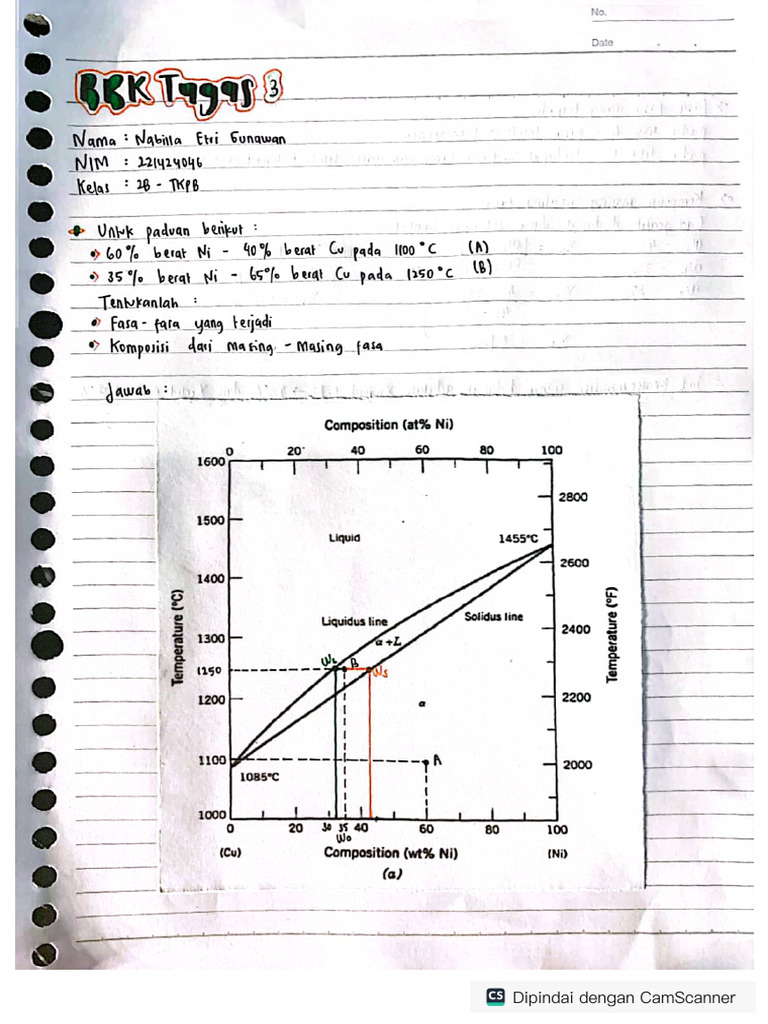 No.
Date
BBK Tugas 3
Nama : Nabilla Etri Gunawan
NIM : 221424046
Kelas : 2B - TKPB
Untuk paduan berikut :
60% berat Ni - 40% berat Cu pada 1100°C (A)
35% berat Ni - 65% berat Cu pada 1250°C (B)
Tentukanlah :
Fasa - fasa yang terjadi
Komposisi dari masing - masing fasa
Jawab :
Composition (at% Ni)
0 20 40 60 80 100
1600
2800
1500
Liquid
1455°C
2600
1400
Temperature (°C)
Temperature (°F)
Liquidus line
Solidus line
2400
1300
α+L
WL B WS
1250
1200
2200
α
1100
A
2000
1085°C
1000
0 20 30 35 40 60 80 100
Wo
(Cu) Composition (wt% Ni) (Ni)
(a)
CS Dipindai dengan CamScanner